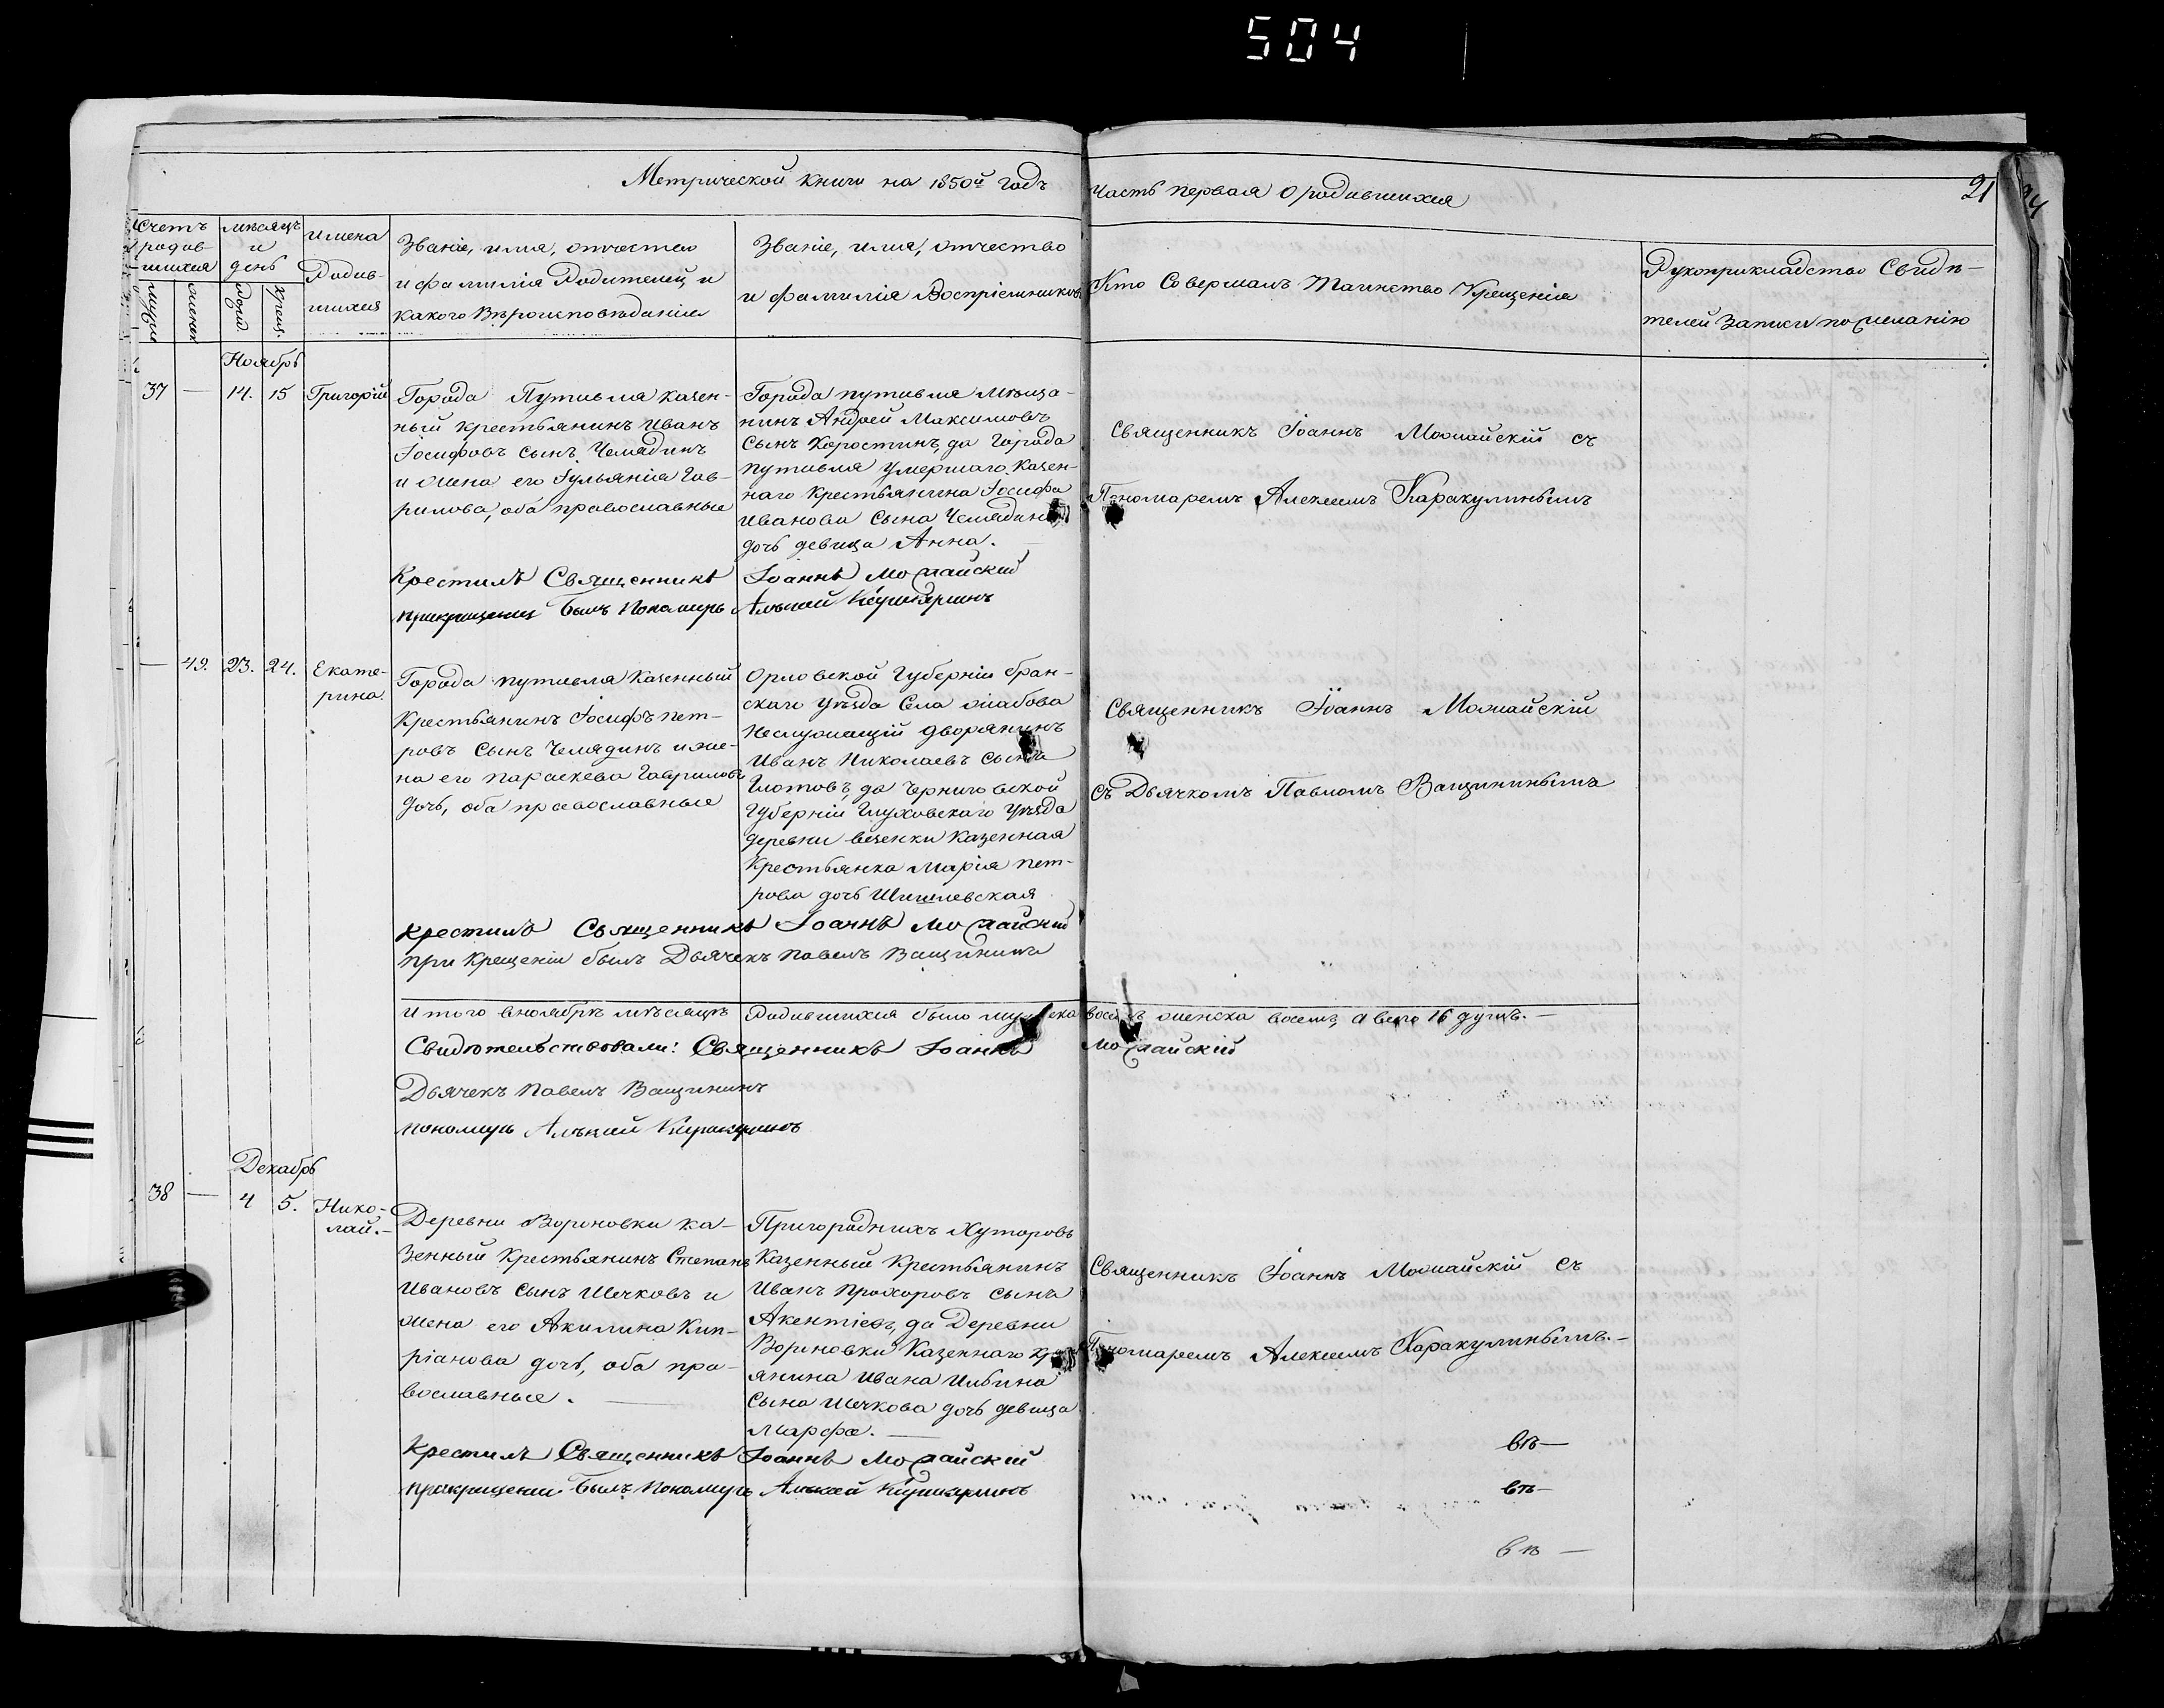 504
Метрической книги на 1850й годъ
Часть первая о родившихся
21
Счетъ родив-шихся
мужеска
женска
мѣсяцъ и день
рожд.
крещ.
имена Родив-шихся
Званіе, имя, отчество
и фамилія Родителей и
какого вѣроисповѣданія
Званіе, имя, отчество
и фамилія Воспріемниковъ
Кто совершалъ таинство Крещенія
Рукоприкладство Свидѣ-
телей записи по желанію
Ноябрь
37 — 14. 15 Григорій
Города Путивля казен-
ный крестьянинъ Иванъ
Іосифовъ сынъ Челядинъ
и жена его Іульянія Гав-
рилова, оба православные
Города путивля мѣща-
нинъ Андрей Максимовъ
сынъ Коростинъ, да города
путивля умершаго казен-
наго крестьянина Іосифа
Иванова сына Челядина
дочь девица Анна.
Священникъ Іоаннъ Можайскій съ
Пономаремъ Алексіемъ Каракулинымъ
Крестилъ Священникъ Іоаннъ Можайский
при крещении былъ Пономарь Алексей Каракулинъ
— 49. 23. 24. Екате-
рина.
Города путивля казенный
крестьянинъ Іосифъ пет-
ровъ сынъ Челядинъ и же-
на его параскева Гаврилова
дочь, оба православные
Орловской Губерніи бран-
скаго уѣзда Села
неслужащій дворянинъ
Иванъ Николаевъ сынъ
да Черниговской
Губерніи Глуховскаго уѣзда
деревни казенная
крестьянка Марія пет-
рова дочь
Священникъ Іоаннъ Можайскій
съ Дьячкомъ Павломъ Ващининымъ
крестилъ Священникъ Іоаннъ Можайский
при крещеніи былъ Дьячекъ павелъ Ващининъ
Итого в ноябрѣ мѣсяцѣ родившихся было мужеска восемь женска восемь, а всего 16 душъ. —
Свидѣтельствовали: Священникъ Іоаннъ Можайскій
Дьячекъ Павелъ Ващининъ
пономарь Алексей Каракулинъ
Декабрь
38 — 4 5. Нико-
лай. —
Деревни Вороновки ка-
зенный крестьянинъ Степанъ
Ивановъ сынъ Шечковъ и
жена его Акилина Кип-
ріанова дочь, оба пра-
вославные. —
Пригородныхъ Хуторовъ
казенный крестьянинъ
Иванъ Прохоровъ сынъ
Акентіевъ, да Деревни
Вороновки казеннаго
янина Ивана Ильина
сына Шечкова дочь девица
Марфа. —
Священникъ Іоаннъ Можайскій съ
Пономаремъ Алексіемъ Каракулинымъ. —
Крестилъ Священникъ Іоаннъ Можайский
при крещении былъ пономарь Алексей Каракулинъ